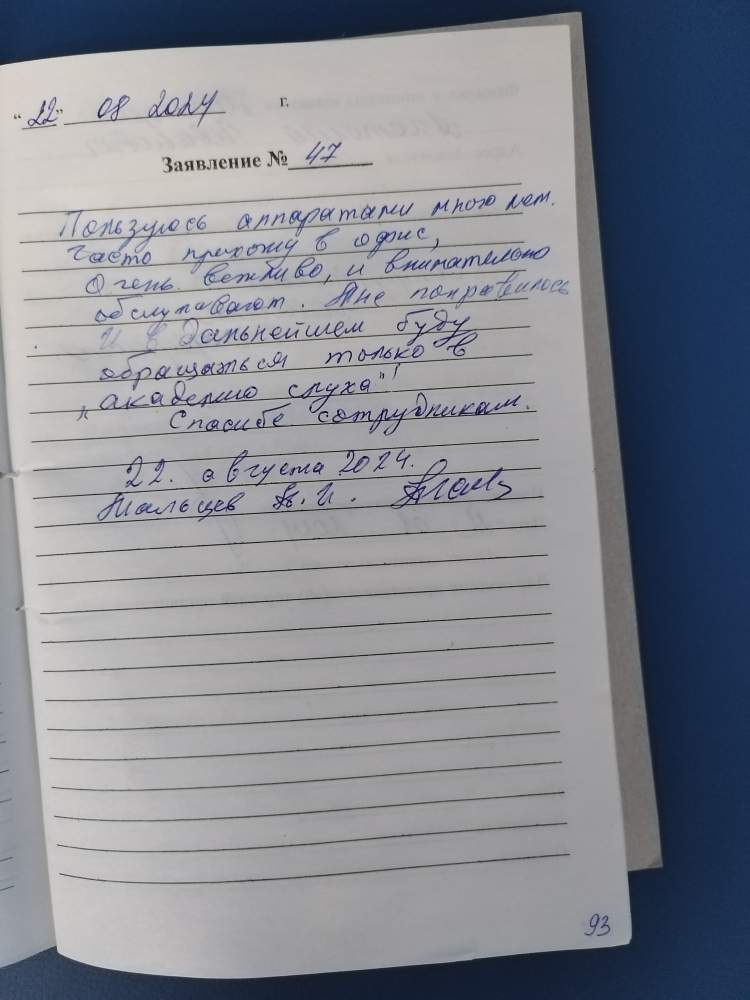 "22" 08 2024 г.
Заявление № 47
Пользуюсь аппаратами много лет.
Часто прихожу в офис,
Очень вежливо, и внимательно
обслуживают. Мне понравилось
И в дальнейшем буду
обращаться только в
„академию слуха"!
Спасибо сотрудникам.
22. августа 2024.
Мальцев И.
93